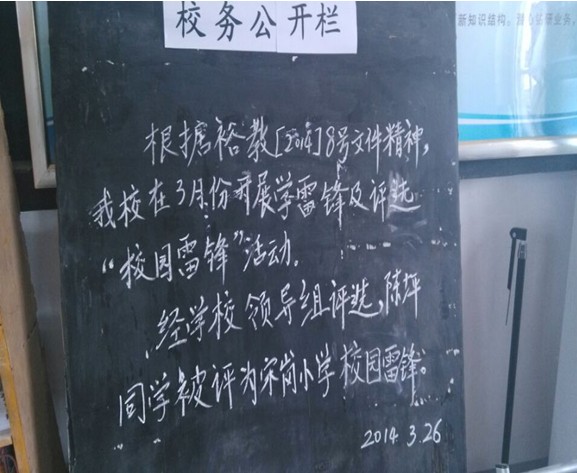 校务公开栏
新知识结构。
根据裕教[2014]8号文件精神,
我校在3月份开展学雷锋及评选
“校园雷锋”活动。
经学校领导组评选,陈坪
同学被评为宋岗小学校园雷锋。
2014.3.26